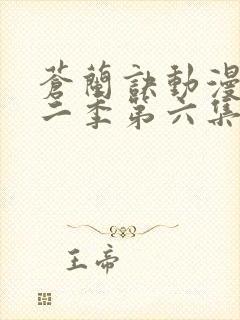 蒼蘭訣動漫
二季第六集
王帝